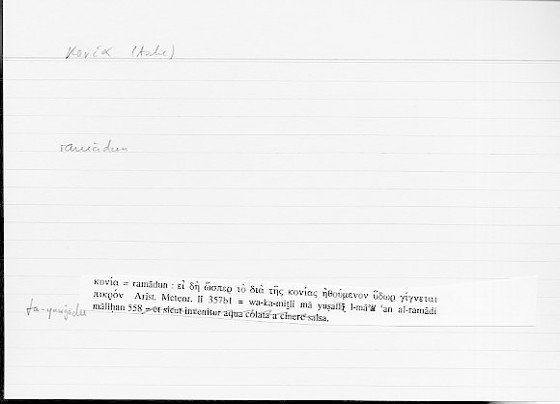 κονία (Asche)
ramādun
κονία = ramādun : εἰ δὴ ὥσπερ τὸ διὰ τῆς κονίας ἠθούμενον ὕδωρ γίγνεται
πικρόν Arist. Meteor. II 357b1 = wa-ka-miṯli mā yuṣaffā l-māʾu ʿan al-ramādi
māliḥan 558 = et sicut invenitur aqua colata a cinere salsa.